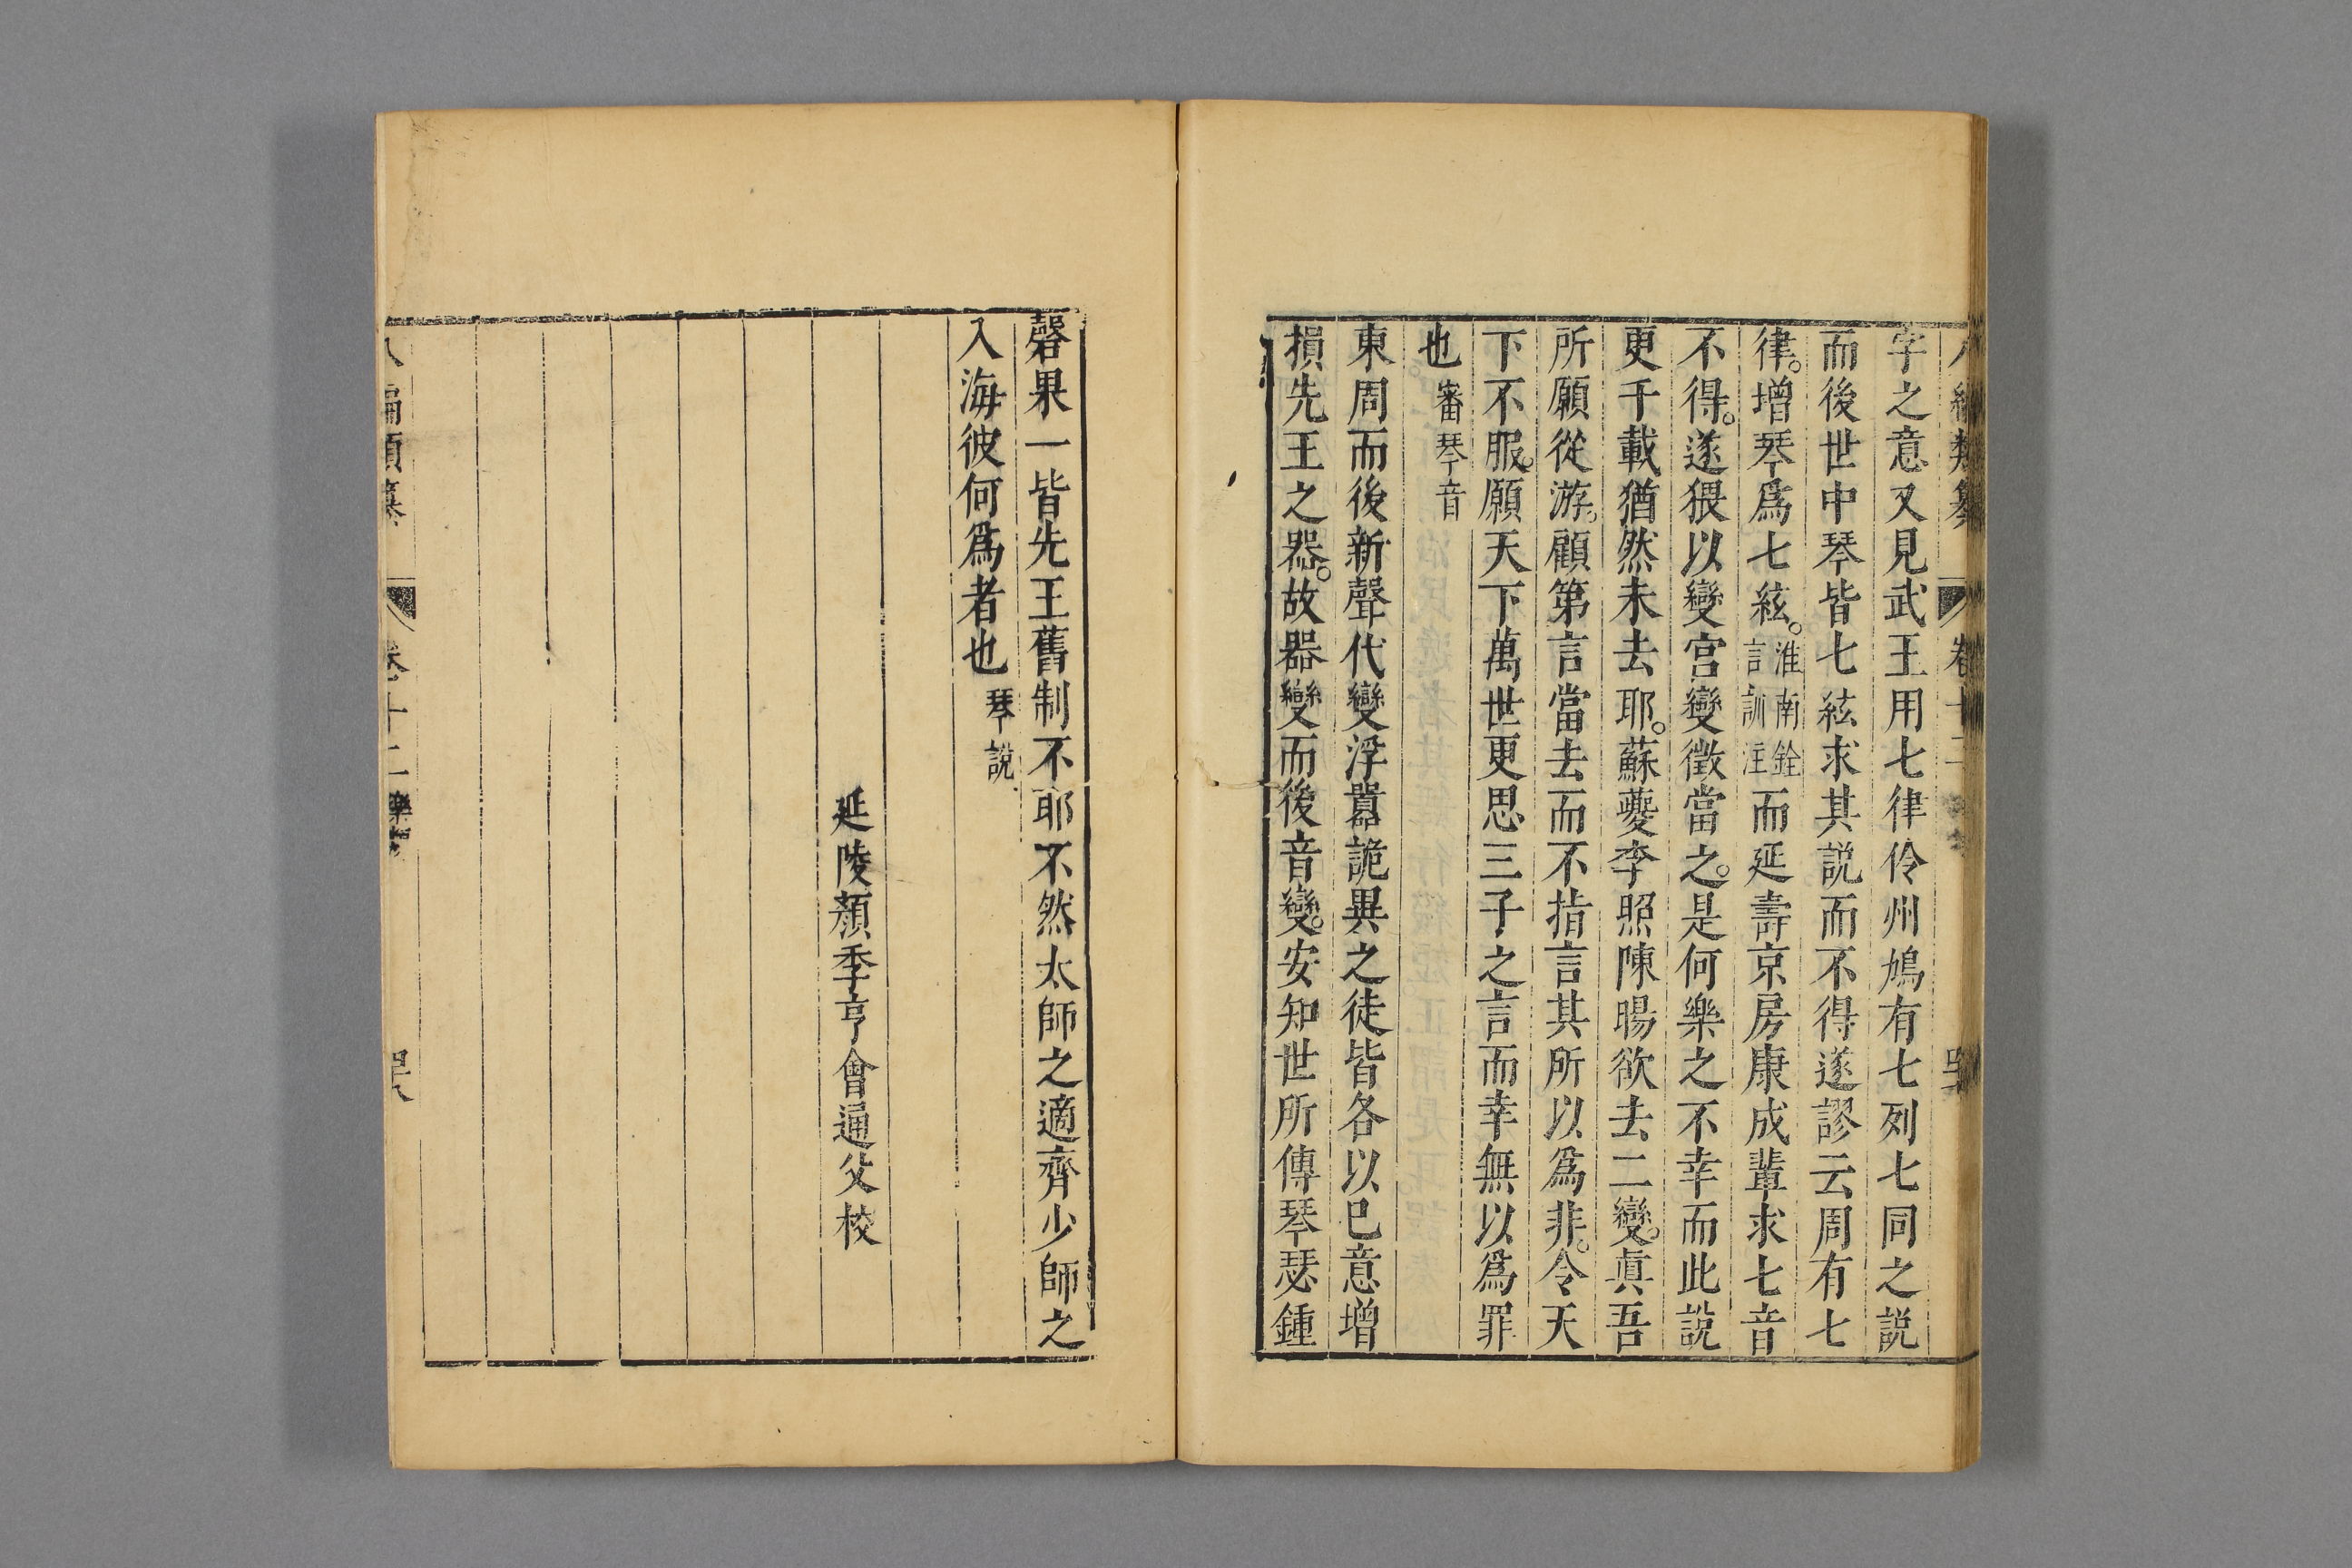 編類纂 卷十二
字之意又見武王用七律伶州鳩有七列七同之說
而後世中琴皆七絃求其說而不得遂謬云周有七
律。增琴爲七絃。淮南銓言訓注而延壽京房康成輩求七音
不得。遂猥以變宮變徵當之。是何樂之不幸而此說
更千載猶然未去耶。蘇夔李照陳暘欲去二變。眞吾
所願從游。顧第言當去而不指言其所以爲非。令天
下不服。願天下萬世更思三子之言而幸無以爲罪
也 審琴音
東周而後新聲代變浮囂詭異之徒皆各以巳意增
損先王之器。故器變而後音變。安知世所傳琴瑟鍾
磬果一皆先王舊制不耶不然太師之適齊少師之
入海彼何爲者也 琴說
延陵顏季亨會通父校
八編類纂 卷十二 樂 四十六